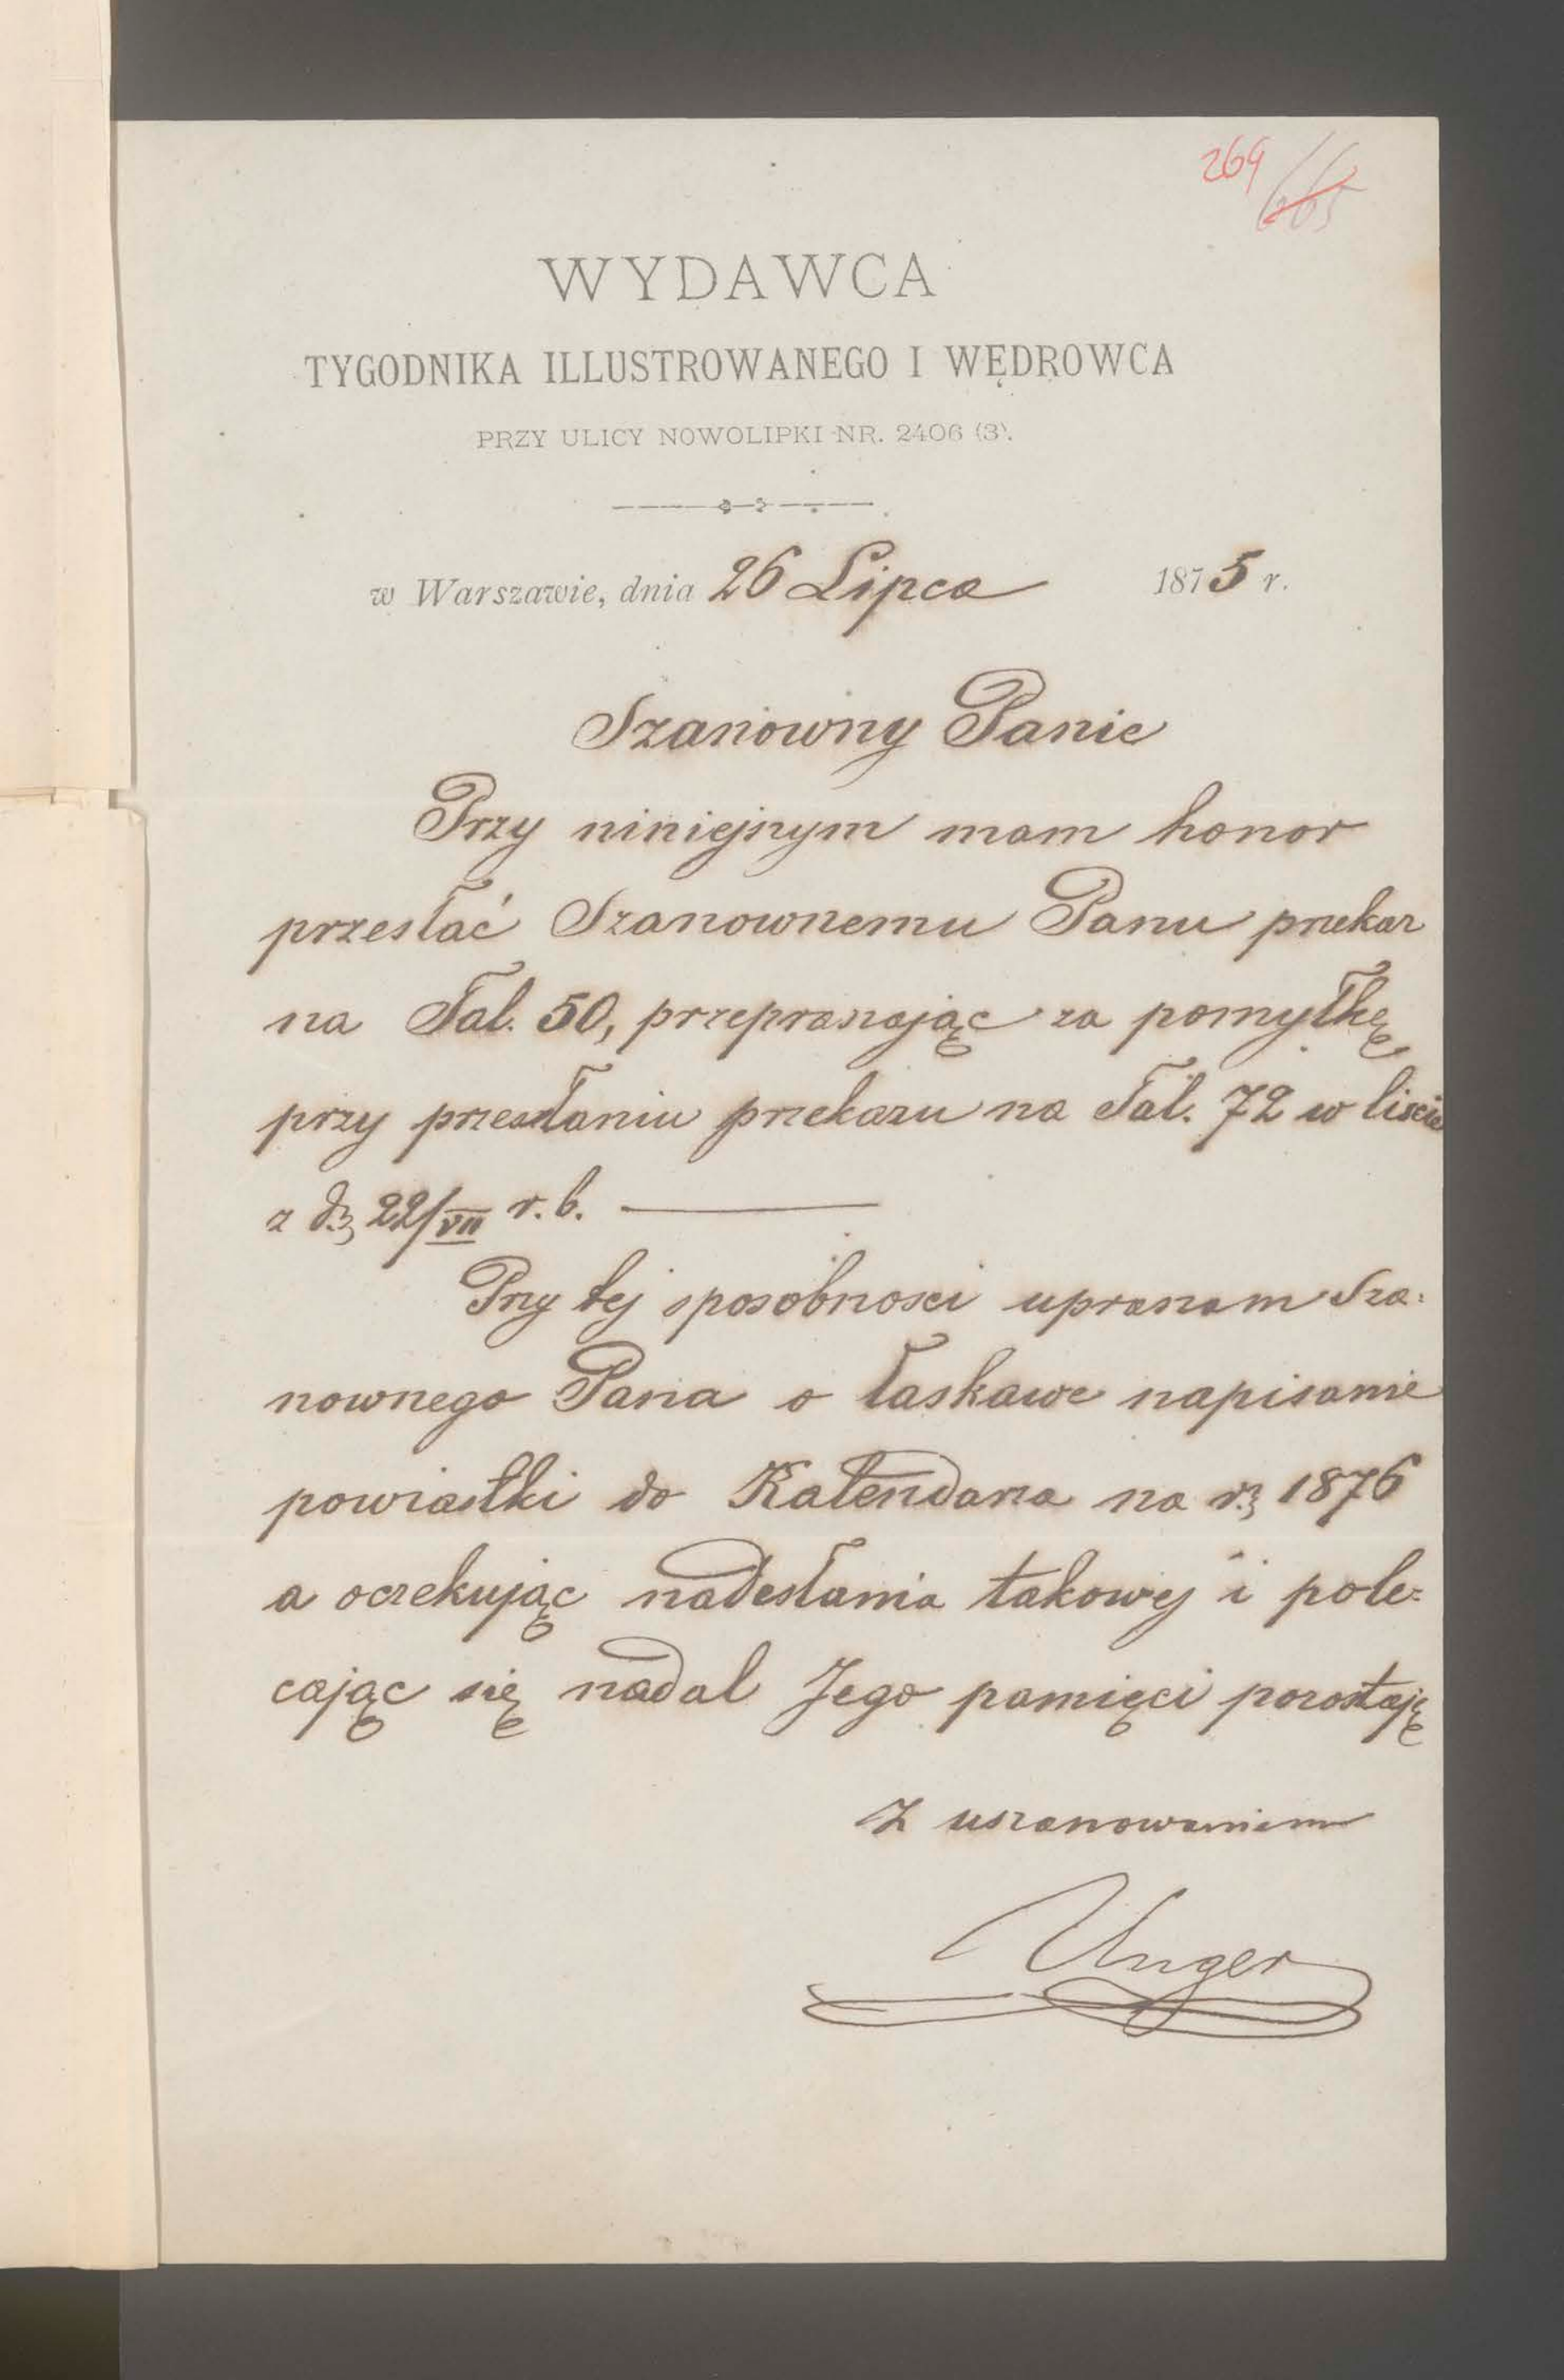 269
265
WYDAWCA
TYGODNIKA ILLUSTROWANEGO I WĘDROWCA
PRZY ULICY NOWOLIPKI NR. 2406 (3).
w Warszawie, dnia 26 Lipca 1875 r.
Szanowny Panie
Przy niniejszym mam honor
przesłać Szanownemu Panu przekaz
na Tal. 50, przepraszając za pomyłkę
przy przesłaniu przekazu na Tal. 72 w liscie
z d. 22/VII r. b.
Przy tej sposobnosci upraszam Sza:
nownego Pana o łaskawe napisanie
powiastki do Kalendarza na r. 1876
a oczekując nadesłania takowej i pole:
cając się nadal Jego pamięci pozostaję
Z uszanowaniem
Unger